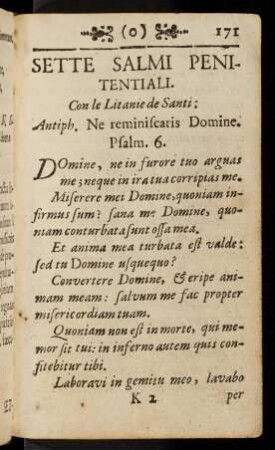 (o) 171
SETTE SALMI PENI-
TENTIALI.
Con le Litanie de Santi:
Antiph. Ne reminiscaris Domine.
Psalm. 6.
DOmine, ne in furore tuo arguas
me; neque in ira tua corripias me.
Miserere mei Domine, quoniam in-
firmus sum? sana me Domine, quo-
niam conturbata sunt ossa mea.
Et anima mea turbata est valde:
sed tu Domine usquequo?
Convertere Domine, & eripe ani-
mam meam: salvum me fac propter
misericordiam tuam.
Quoniam non est in morte, qui me-
mor sit tui: in inferno autem quis con-
fitebitur tibi.
Laboravi in gemitu meo, lavabo
K 2 per